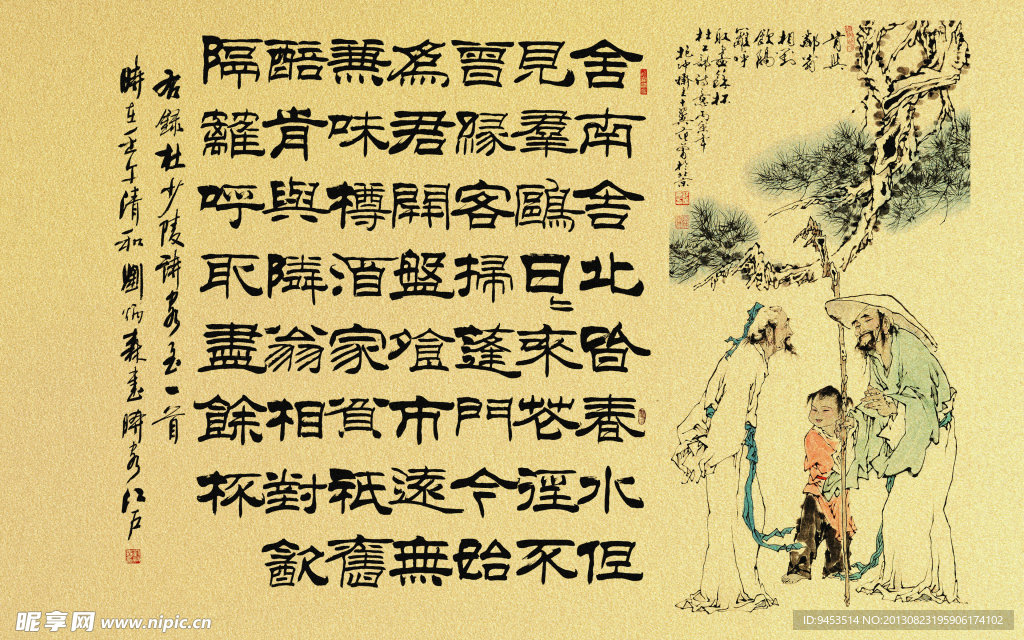 肯與
鄰翁
相對
飲隔
籬呼
取盡餘杯
杜工部詩意年
抱沖齋主十翼范曾
舍南舍北皆春水但
見羣鷗日〻來花徑不
曾緣客掃蓬門今始
為君開盤飧市遠無
兼味樽酒家貧祇舊
醅肯與隣翁相對飲
隔籬呼取盡餘杯
右錄杜少陵詩客至一首
時在壬午清和劉炳森書時客江戶
昵享网 www.nipic.cn
ID:9453514 NO:20130823195906174102